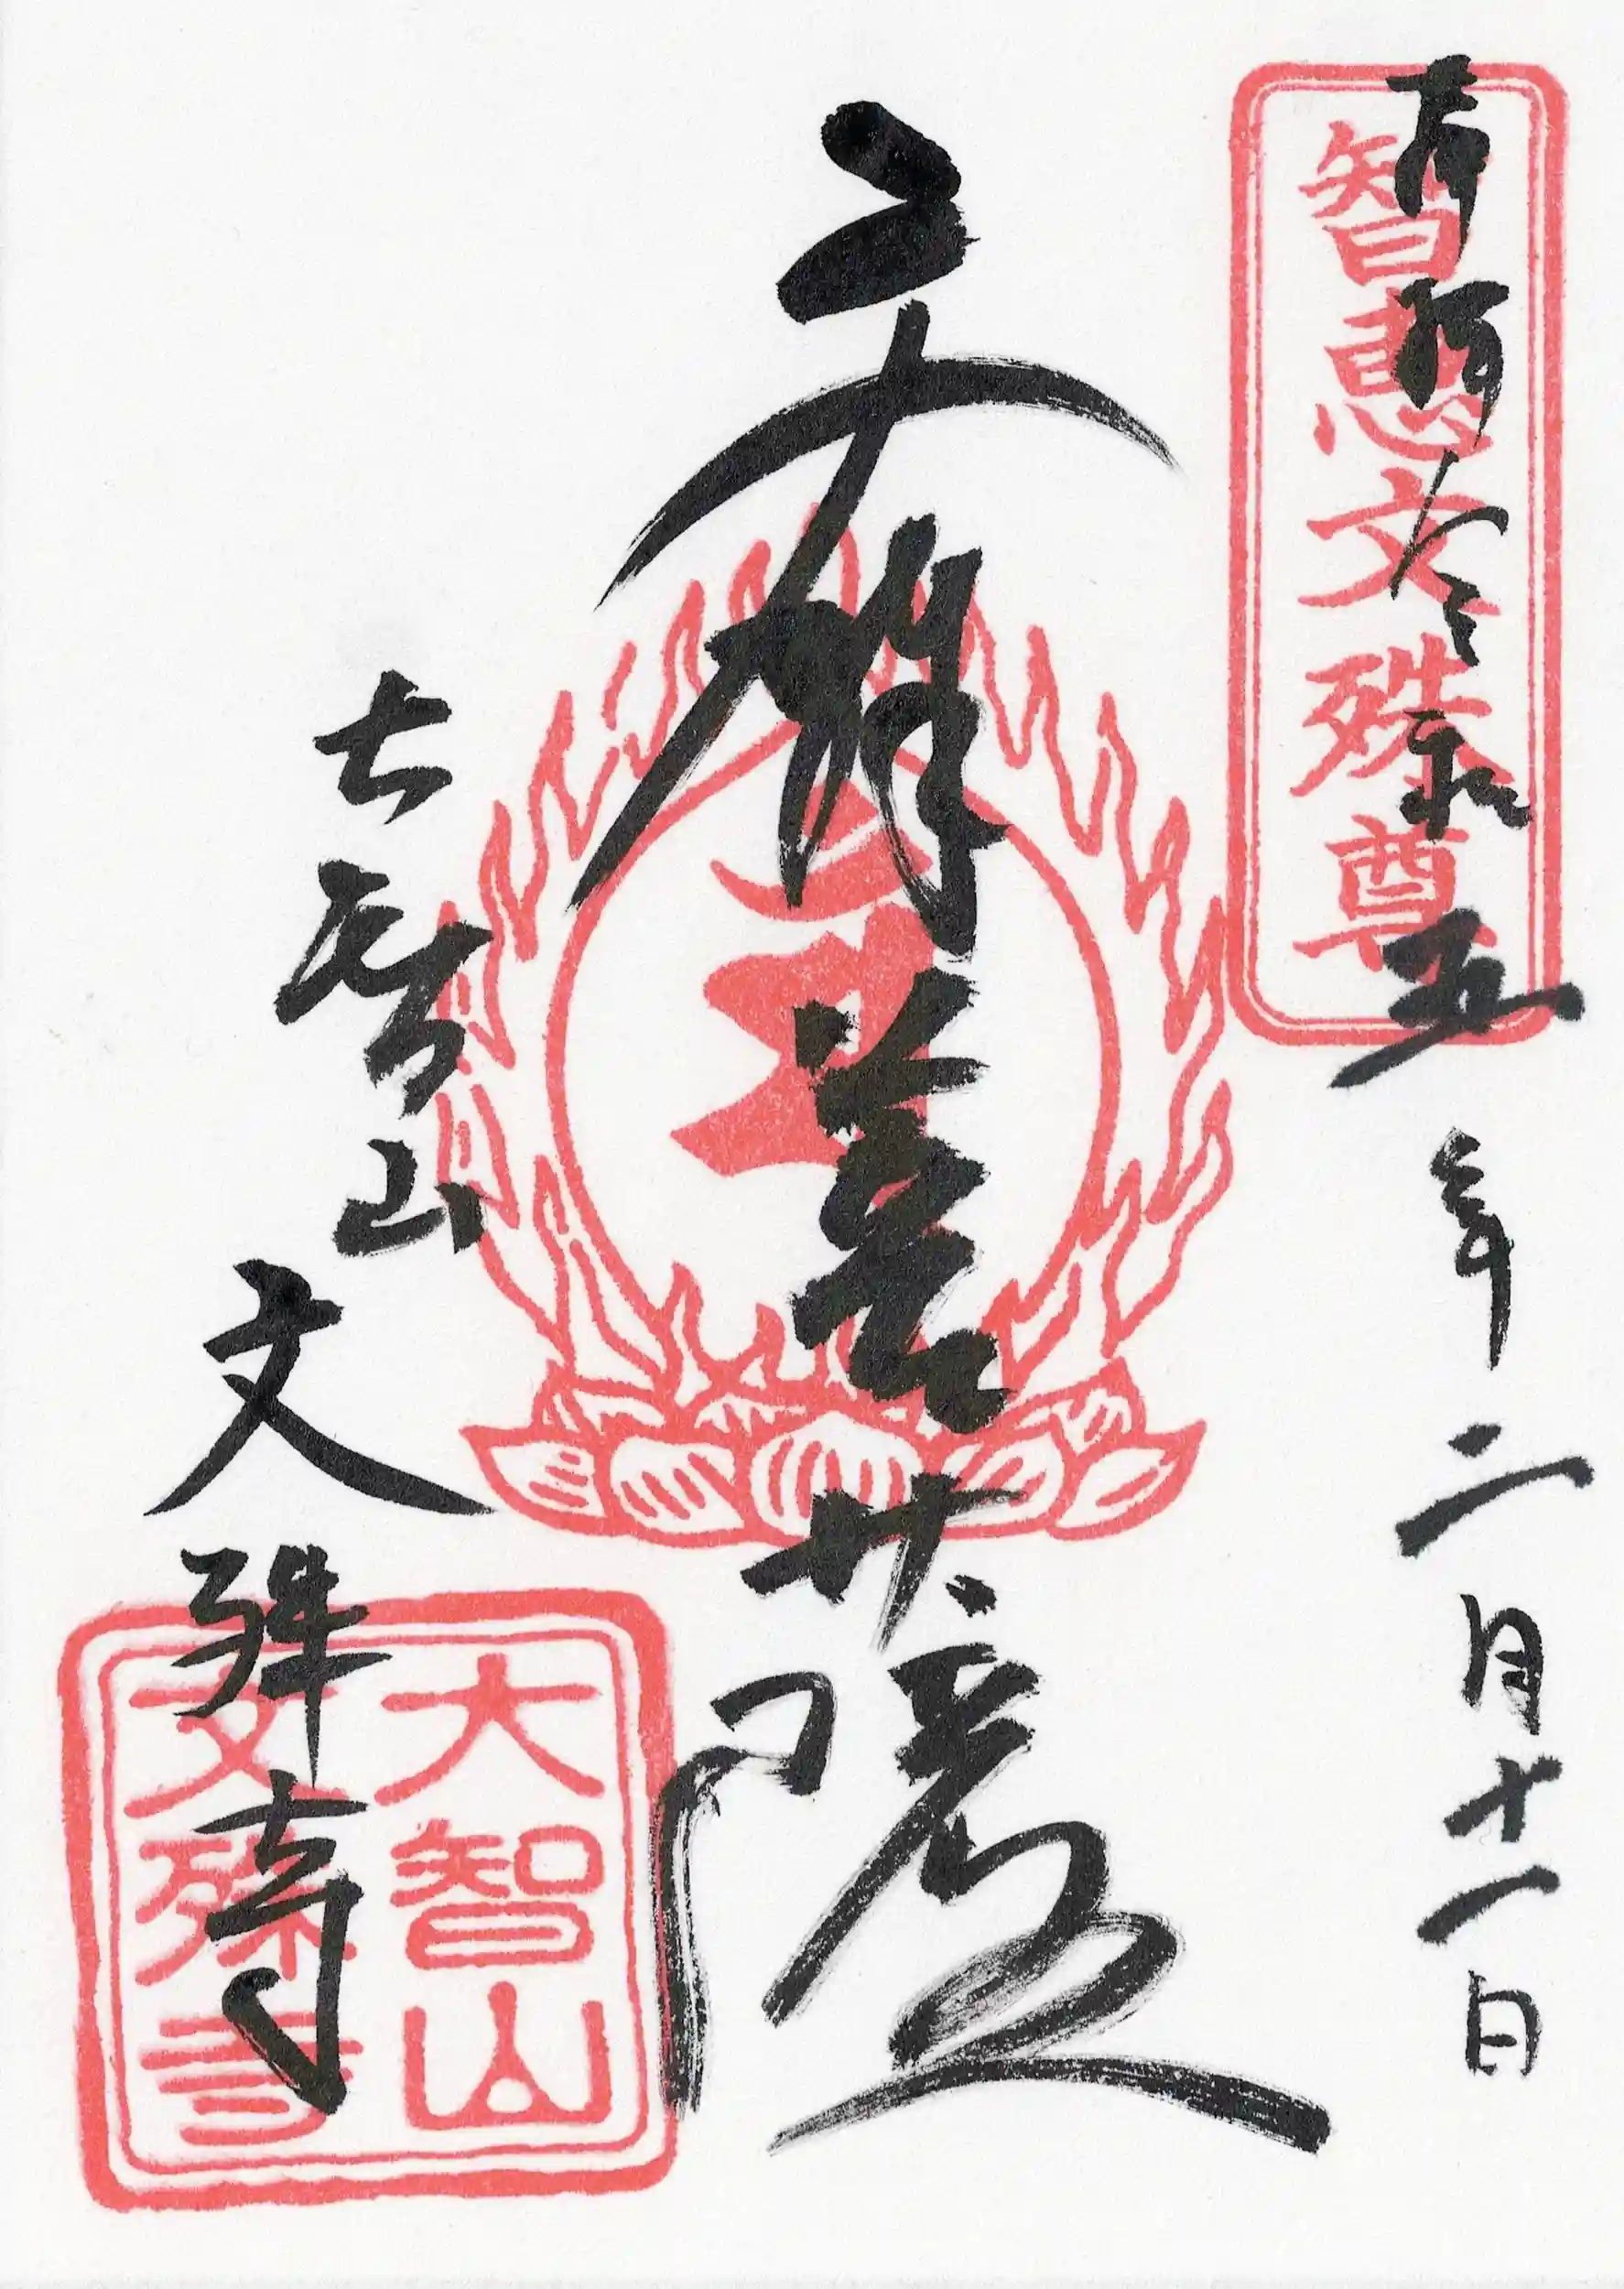 智恵文殊尊
奉拝 令和五年二月十一日
文殊菩薩
大智山 文殊寺
大智山
文殊寺